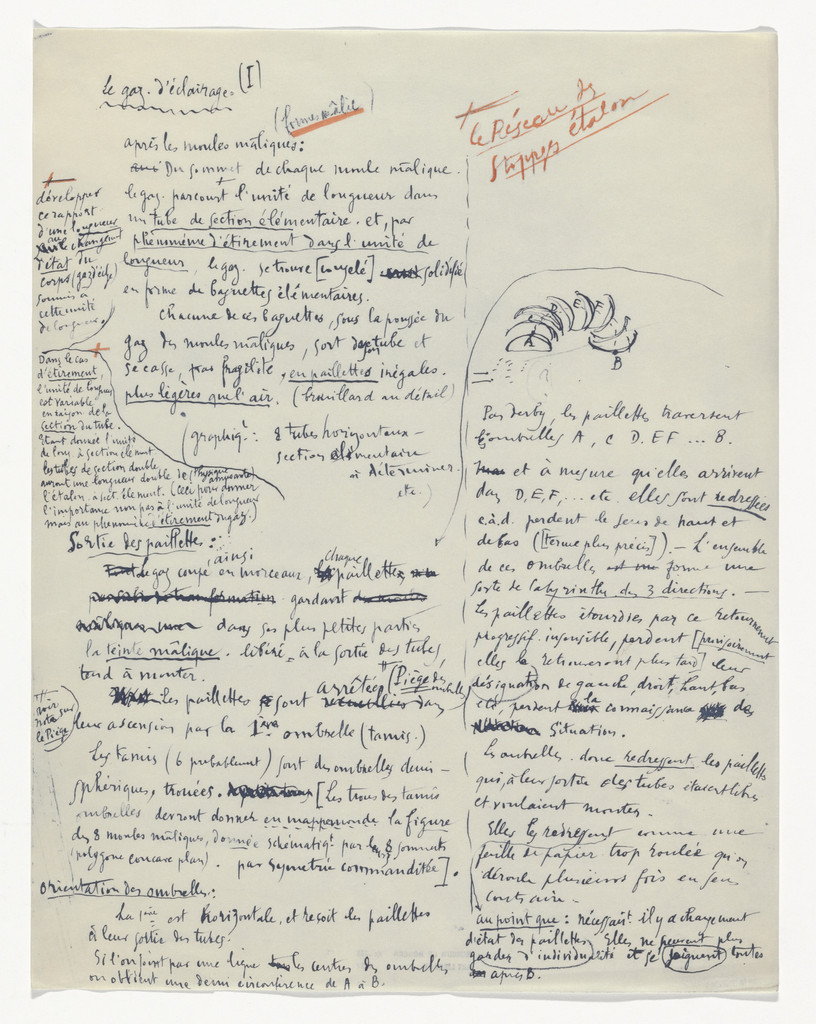 Le gaz d'éclairage (I)
(formes mâlic)
après les moules mâliques:
Du sommet de chaque moule mâlique.
le gaz parcourt l'unité de longueur dans
un tube de section élémentaire. et, par
phénomène d'étirement dans l'unité de
longueur, le gaz se trouve [congelé] solidifié
en forme de baguettes élémentaires.
Chacune de ces baguettes, sous la poussée du
gaz des moules mâliques, sort de son tube et
se casse, par fragilité, en paillettes inégales.
plus légères que l'air. (brouillard au détail)
(graphiqt.: 8 tubes horizontaux -
section élémentaire
à déterminer.
etc.)
développer
ce rapport
d'une longueur
au changement
d'état du
corps (gaz d'écl)
soumis à
cette unité
de longueur.
Dans le cas
d'étirement,
l'unité de longueur
est variable
en raison de la
section du tube.
Étant donnée l'unité
de long. à section élément
les tubes de section double
auront une longueur double de
l'étalon à sect. élément. (Ceci pour donner
l'importance non pas à l'unité de longueur
mais au phénomène d'étirement du gaz.)
(physique amusante)
Sortie des paillettes:
le gaz coupé ainsi en morceaux, chaque paillette
gardant
dans ses plus petites parties
la teinte mâlique. libéré, à la sortie des tubes,
tend à monter.
Les paillettes sont arrêtées (Piège des ombrelles) dans
leur ascension par la 1ère ombrelle (tamis.)
voir
note sur
le Piège
Les tamis (6 probablement) sont des ombrelles demi-
sphériques, trouées. [Les trous des tamis
ombrelles devront donner en mappemonde la figure
des 8 moules mâliques, donnée schématiqt. par les 8 sommets
(polygone concave plan). par symétrie commanditée].
Orientation des ombrelles:
La 1ère est horizontale, et reçoit les paillettes
à leur sortie des tubes.
Si l'on joint par une ligne les centres des ombrelles
on obtient une demi circonférence de A à B.
Le Réseau des
stoppages étalon
A C D E F
B
Pas derby, les paillettes traversent
les ombrelles A, C D. EF ... B.
et à mesure qu'elles arrivent
dans D, E, F, ... etc. elles sont redressées
c.à.d. perdent le sens de haut et
de bas ([terme plus précis]). - L'ensemble
de ces ombrelles forme une
sorte de labyrinthe des 3 directions. -
Les paillettes étourdies par ce retournement
progressif. insensible, perdent [provisoirement
elles le retrouveront plus tard] leur
désignation de gauche, droit, haut, bas
etc, perdent la connaissance de
situation.
Les ombrelles. donc redressent les paillettes
qui, à leur sortie des tubes étaient libres
et voulaient monter.
Elles les redressent comme une
feuille de papier trop roulée qu'on
déroule plusieurs fois en sens
contraire -
au point que: nécessairt. il y a changement
d'état des paillettes. Elles ne peuvent plus
garder d'individualité et se joignent toutes
après B.